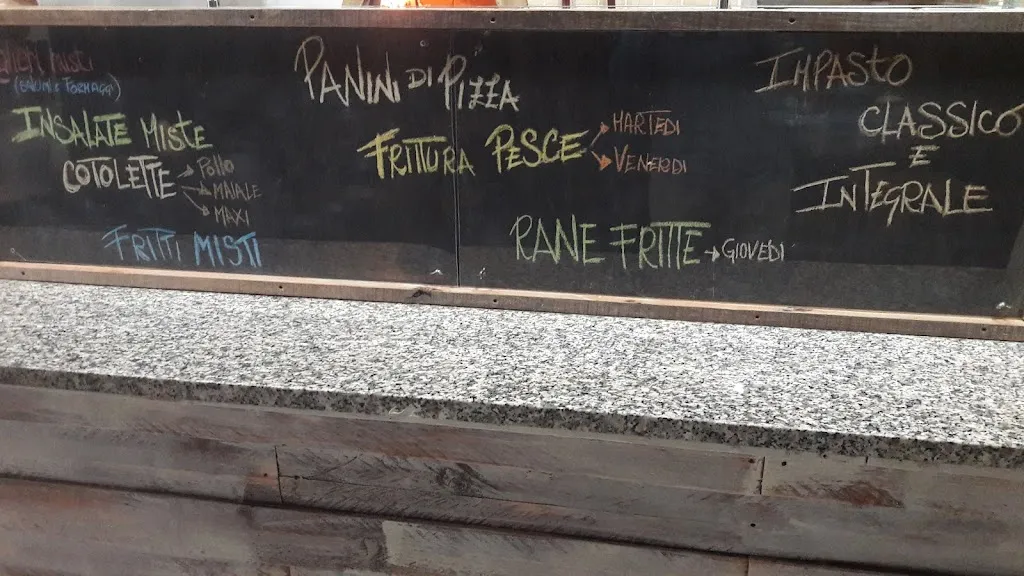 MISTI
(SALUMI E FORMAGGI)
INSALATE MISTE
COTOLETTE
POLLO
MAIALE
MAXI
FRITTI MISTI
PANINI DI PIZZA
FRITTURA PESCE
MARTEDI
VENERDI
RANE FRITTE → GIOVEDI
IMPASTO
CLASSICO
E
INTEGRALE